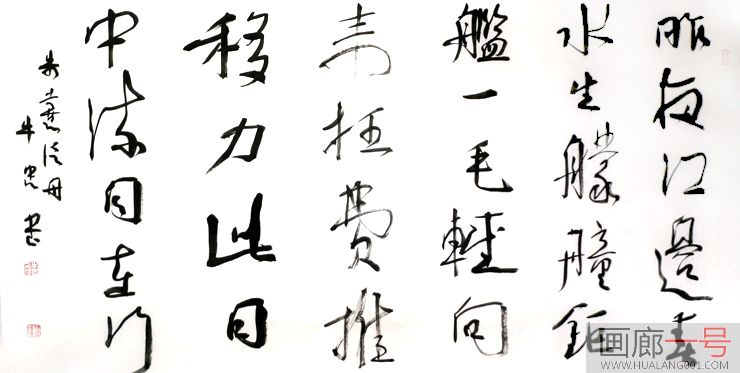 昨夜江邊春
水生艨艟鉅
艦一毛輕向
来枉費推
移力此日
中流自在行
朱熹泛舟
牛 书
画廊一号
WWW.HUALANG001.COM